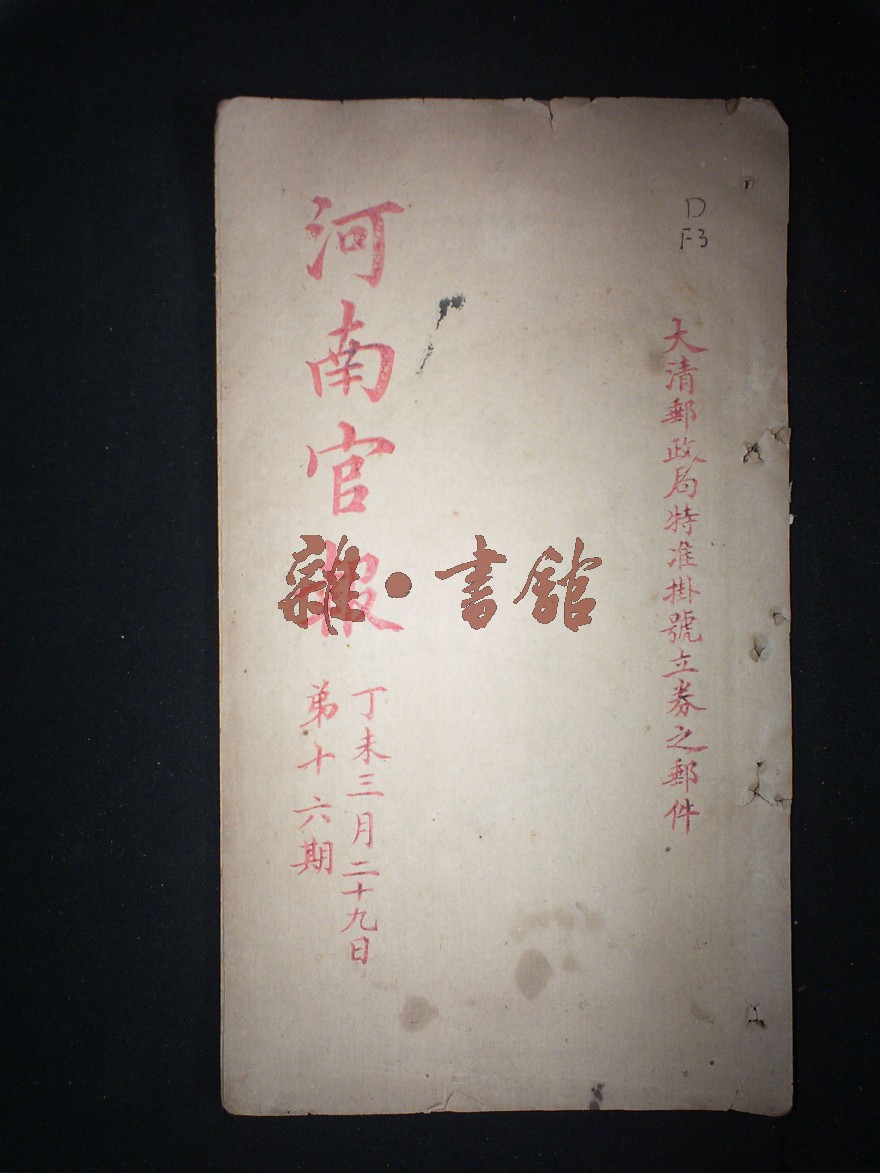 D
F3
大清郵政局特准掛號立券之郵件
河南官報
丁未三月二十九日
弟十六期
雜·書館